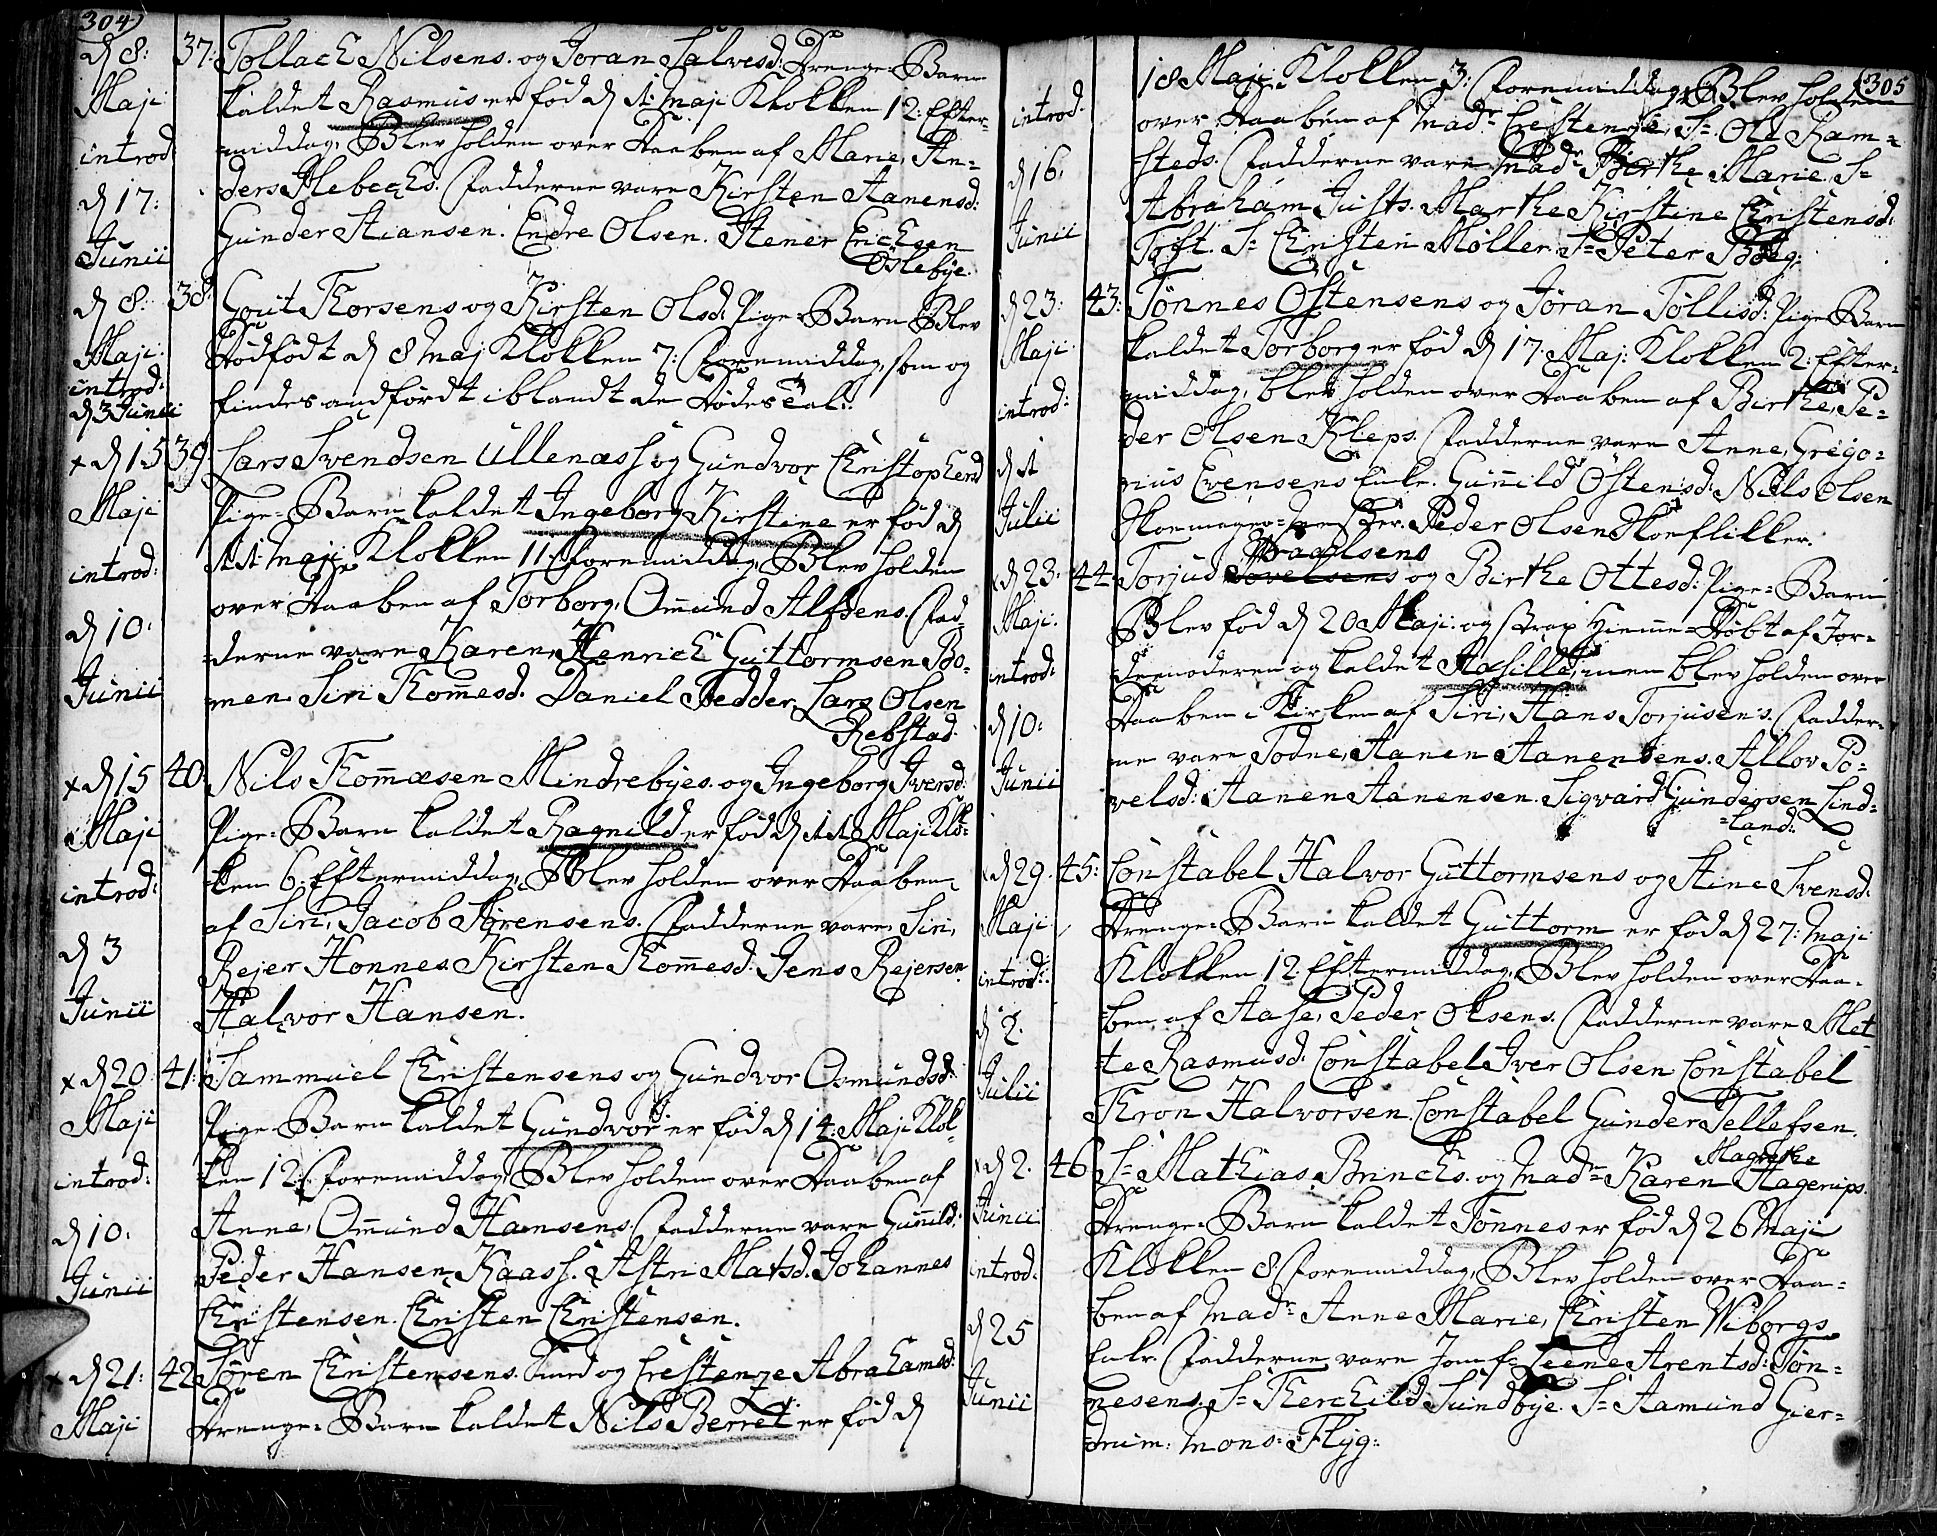 304
d 8:
Maji
introd:
d 17:
Junii
37: Tollach Nilsens. og Joran Salvesd: Drenge-Barn
kaldet Rasmus er fød d 1. Maji Klokken 12: Efter-
middag, Blev holden over Daaben af Marie, An-
ders Holbechs. Fadderne vare Kirsten Aanensd:
Gunder Stiansen. Endre Olsen. Stener Erichsen
Oslebye.
d 8:
Maji.
introd:
d 3 Junii
38: Gout Thorsens og Kirsten Olsd: Pige-Barn Blev
dødfødt d 8 Maj Klokken 7: Foremiddag, som og
findes andførdt iblandt de Dødes Tal:
x d 15
Maji
introd:
d 10.
Junii
39. Lars Svendsen Ullenæss og Gundvor Christophersd
Pige-Barn kaldet Ingeborg Kirstine er fød d
11 Maji Klokken 11: Foremiddag, Blev holden
over Daaben af Torborg, Omund Alfsens. Fad-
derne vare Karen, Henrich Guttormsen Bo-
men. Siri Thomesd. Daniel Fedder, Lars Olsen
Rebstad.
x d 15
Maji
introd:
d 3
Junii
40. Nils Thommesen Mindrebyes. og Ingeborg Iversd:
Pige-Barn kaldet Ragnild er fød d 11 Maji Klo-
ken 6. Eftermiddag, Blev holden over Daaben
af Siri, Jacob Sørensens. Fadderne vare Siri,
Rejer Honnes. Kirsten Thommesd. Jens Rejersen.
Halvor Hansen.
x d 20
Maji
introd:
d 10.
Junii
41: Sammuel Christensens og Gundvor Osmundsd:
Pige-Barn kaldet Gundvor er fød d 14: Maji Klok-
ken 12. Foremiddag, Blev holden over Daaben af
Anne, Omund Hansens. Fadderne vare Gunild,
Peder Hansen Kaass. Astri Matsd. Johannes
Christensen. Christen Christensen.
x d 21:
Maji
42 Søren Christensens. Lund og Chrestenze Abrahamsd:
Drenge-Barn kaldet Nils Berret er fød d
305
introd.
d 16.
Junii
18 Maji. Klokken 3: Foremiddag, Blev holden
over Daaben af Madr Chrestense, Sr Ole Ram-
steds. Fadderne vare Madr Birthe Marie, Sr
Abraham Justs. Marthe Kirstine Christensd:
Toft. Sr Christen Møller. Sr Peter
d 23:
Maji.
introd:
d 1
Julii
43: Tønnes Ostensens og Jøran Tollisd: Pige-Barn
kaldet Torborg er fød d 17. Maj: Klokken 2: Efter-
middag, blev holden over Daaben af Birthe, Pe-
der Olsen Kleps. Fadderne vare Anne, Grego-
rius Evensens Enke. Gunild Østensd: Nils Olsen
Skomager- Peder Olsen Skoeflikker.
x d 23.
Maji.
introd:
d 10.
Junii
44 Torjud Povelsens og Birthe Ottesd: Pige-Barn
Blev fød d 20 Maji. og strax Hjemme-døbt af Jor-
demoderen og kaldet Aasille, men blev holden over
Daaben i Kirken af Siri, Hans Torjusens. Fadder-
ne vare Todne, Aanen Aanensens. Allov Po-
velsd: Aanen Aanensen. Sigvard Gundersen Lind-
land.
x d 29.
Maji
introd:
d 2.
Julii
45: Constabel Halvor Guttormsens og Stine Svensd.
Drenge-Barn kaldet Guttorm er fød d 27: Maji
Klokken 12. Eftermiddag, Blev holden over Daa-
ben af Aase, Peder Olsens. Fadderne vare Met-
te Rasmusd. Constabel Iver Olsen Constabel
Thron Halvorsen. Constabel Gunder Tellefsen.
x d 2.
Junii
introd.
d 25
Junii
46 Sr Mathias Brinchs. og Madr Karen Magrethe Hagerups.
Drenge-Barn kaldet Tønnes er fød d 26 Maji
Klokken 8 Foremiddag, Blev holden over Daa-
ben af Madr Anne Marie, Christen Wiborgs
Enke. Fadderne vare Jomf. Leene Arentsd: Tøn-
nesens. Sr Therchild Sundbye. Sr Aamund Gier-
drum. Mons: Flyg: